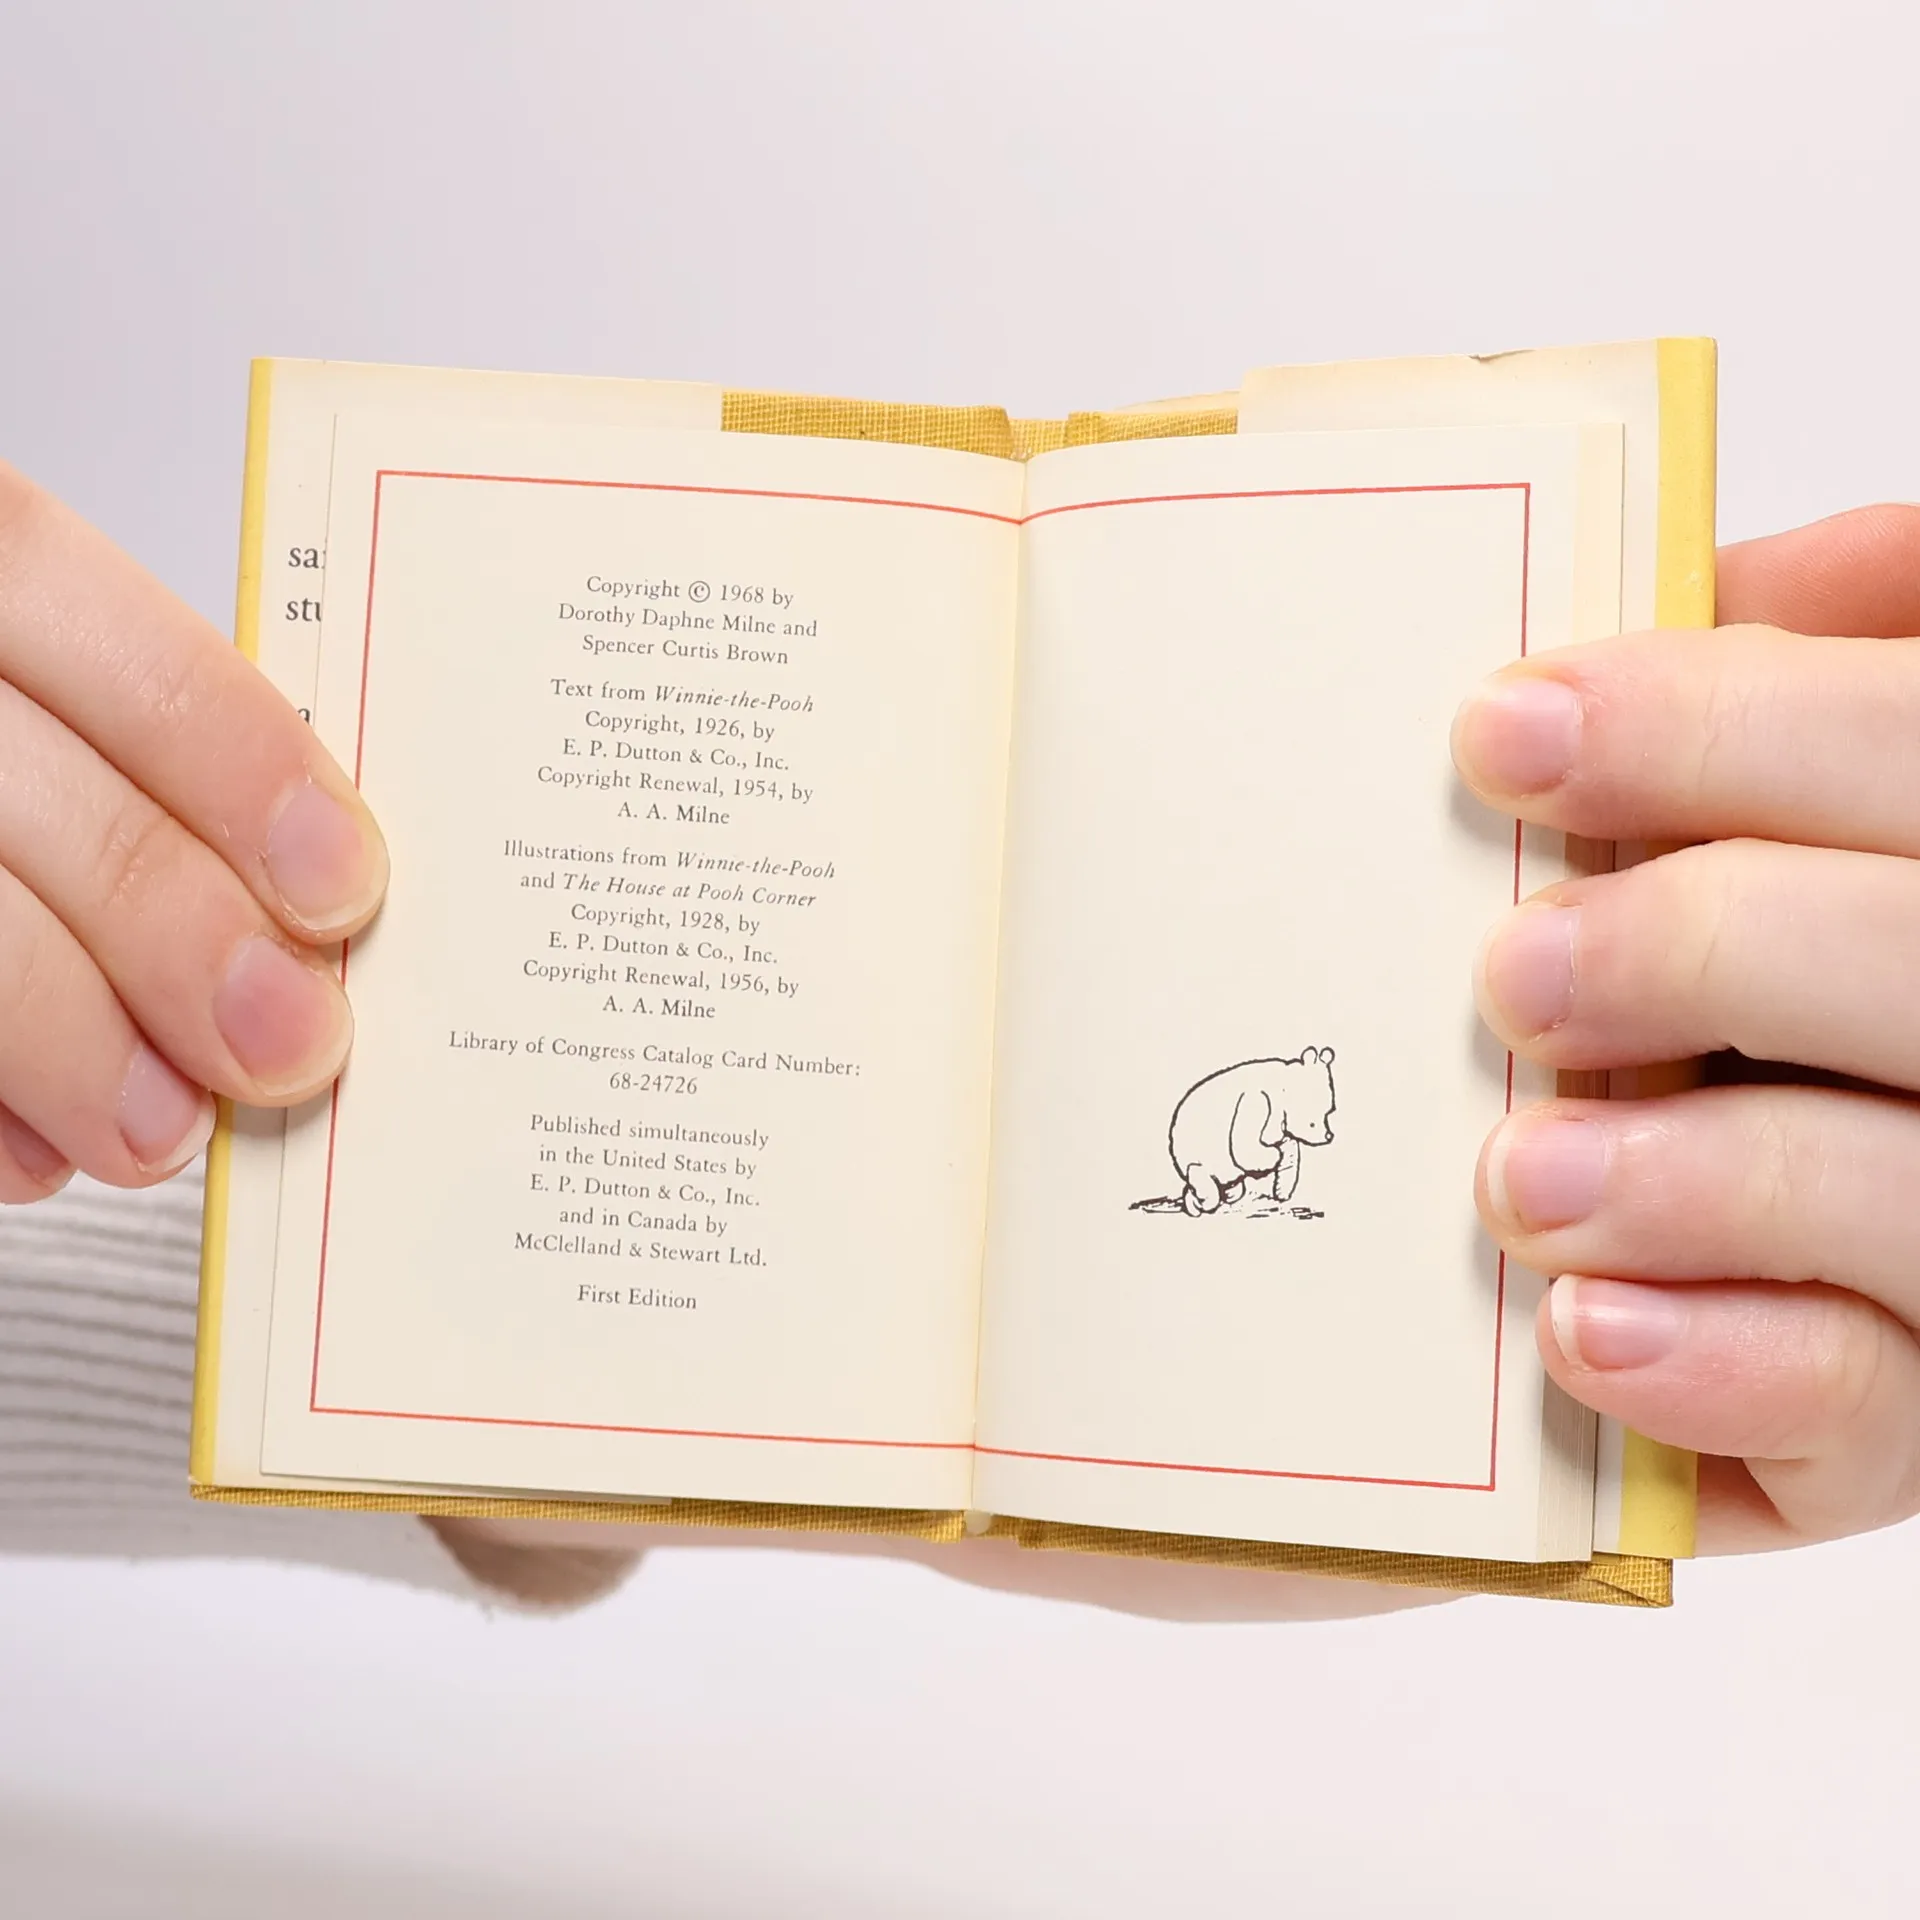 Copyright © 1968 by
Dorothy Daphne Milne and
Spencer Curtis Brown
Text from Winnie-the-Pooh
Copyright, 1926, by
E. P. Dutton & Co., Inc.
Copyright Renewal, 1954, by
A. A. Milne
Illustrations from Winnie-the-Pooh
and The House at Pooh Corner
Copyright, 1928, by
E. P. Dutton & Co., Inc.
Copyright Renewal, 1956, by
A. A. Milne
Library of Congress Catalog Card Number:
68-24726
Published simultaneously
in the United States by
E. P. Dutton & Co., Inc.
and in Canada by
McClelland & Stewart Ltd.
First Edition